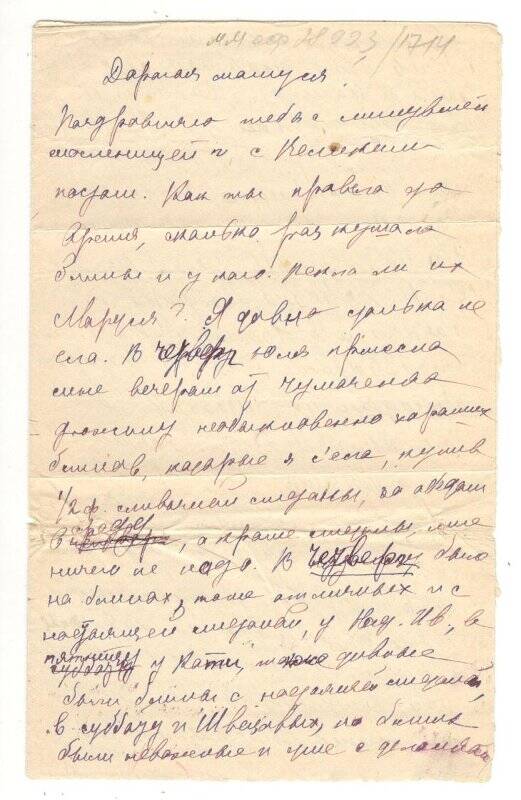 ММ оф № 923/1714
Дорогая мамуся!
Поздравляю тебя с минувшей
масленицей и с Великим
постом. Как ты провела это
время, сколько раз кушала
блины и у кого. Пекла ли их
Маруся? Я давно столько не
ела. В четверг Юля принесла
мне вечером от Чумаченко
дюжину необыкновенно хороших
блинов, которые я съела, купив
1/2 ф. сливочной сметаны, за обедом
в среду, а кроме сметаны, мне
ничего не надо. В четверг была
на блинах, тоже отличных и с
настоящей сметаной, у Над. Ив., в
пятницу у Кати, тоже дивные
были блины с настоящей сметаной,
в субботу у Швецовых, но блины
были неважные и уже с деланной